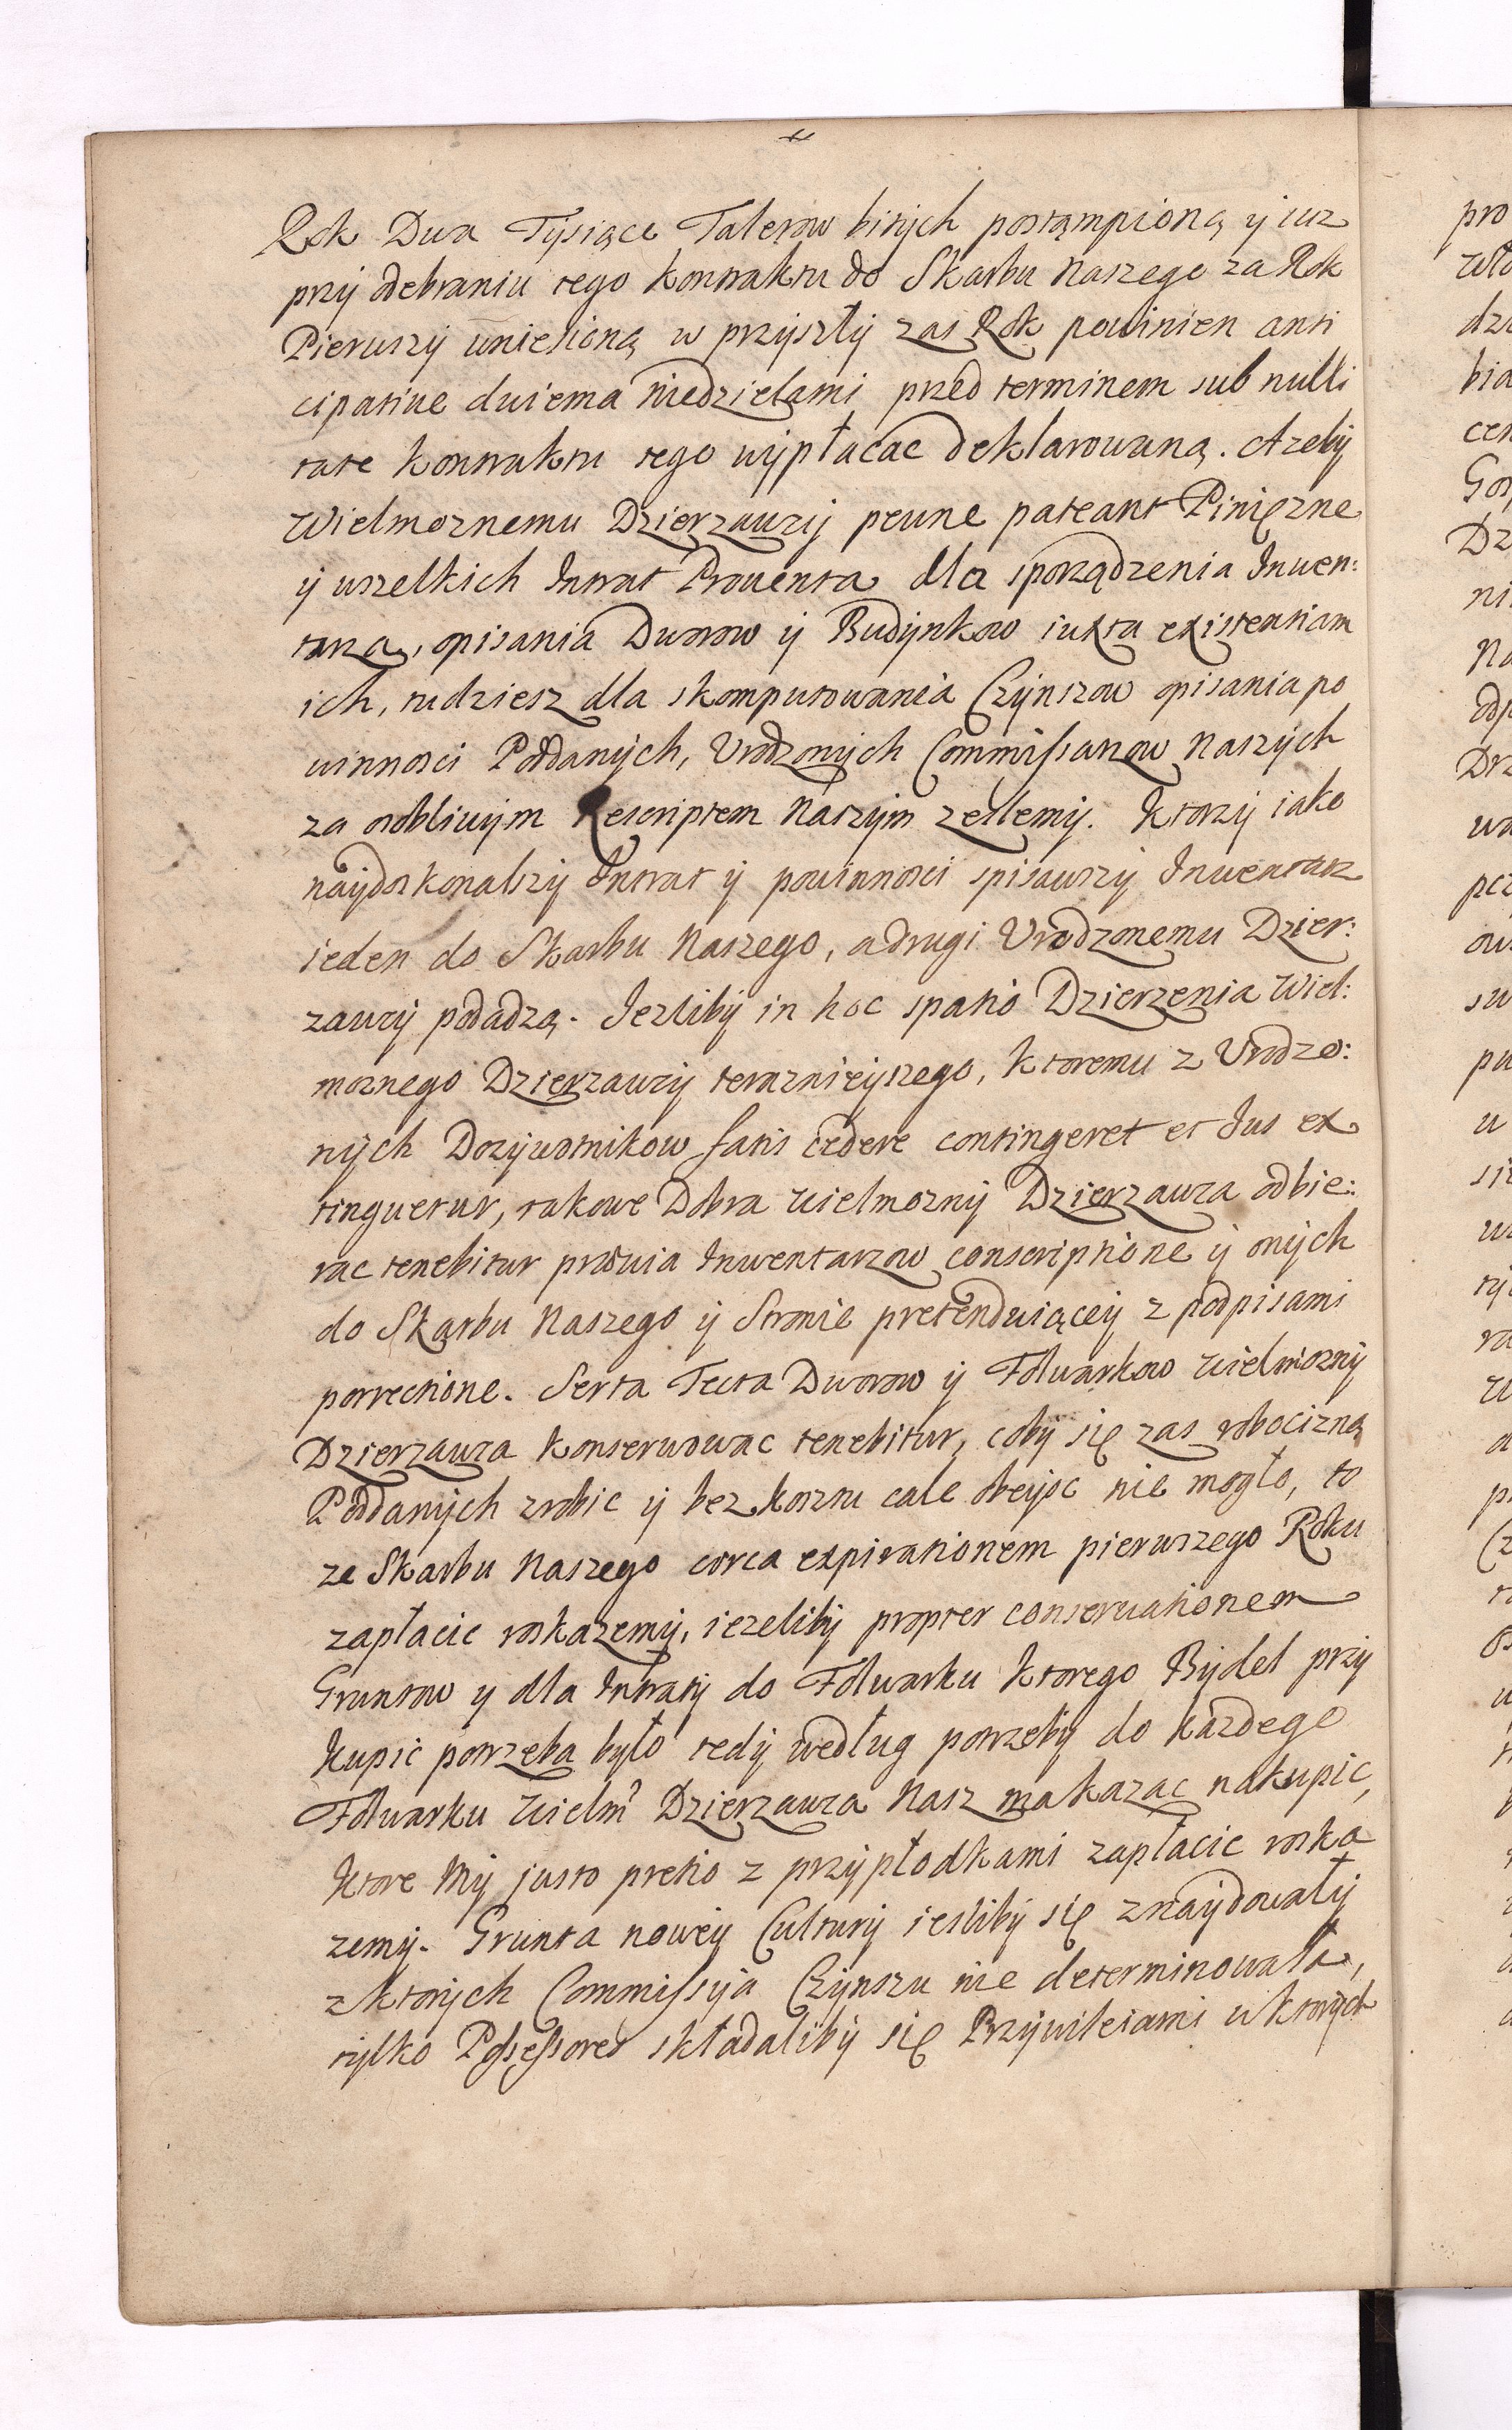 Rok Dwa Tysiące Talerow bitych postąmpioną y iuz
przy odebraniu tego kontraktu do Skarbu Naszego za Rok
Pierwszy wniesioną w przyszły zas Rok powinien anti
cipative dwiema Niedzielami przed terminem sub nulli
tate kontraktu tego wypłacac deklarowaną. Azeby
Wielmoznemu Dzierzawcy pewne pateant Pinięzne
y wszelkich Intrat Prouenta dla sporządzenia Inwen:
tarza, opisania Dworow y Budynkow iuxta existentiam
ich, tudziesz dla skomputowania Czynszow opisania po
winnosci Poddanych, Vrodzonych Commissarzow Naszych
za osobliwym Rescriptem Naszym zeslemy. Ktorzy iako
naydoskonalszy Intrat y powinnosci spisawszy Inwentarz
ieden do Skarbu Naszego, a drugi Vrodzonemu Dzier:
zawcy podadzą. Jezliby in hoc spatio Dzierzenia Wiel:
moznego Dzierzawcy teraznieyszego, ktoremu z Vrodzo:
nych Dozywotnikow fatis cedere contingeret et Ius ex
tinguetur, takowe Dobra Wielmozny Dzierzawca odbie:
rac tenebitur prævia Inwentarzow conscriptione y onych
do Skarbu Naszego y Stronie pretenduiącey z podpisami
porrectione. Serta Tecta Dworow y Folwarkow Wielmozny
Dzierzawca konserwowac tenebitur, coby się zas robocizną
Poddanych zrobic y bez kosztu cale obeysc nie mogło, to
ze Skarbu Naszego circa expirationem pierwszego Roku
zapłacic roskazemy, iezeliby propter conservationem
Gruntow y dla Intraty do Folwarku ktorego Bydeł przy
kupic potrzeba było tedy według potrzeby do kazdego
Folwarku Wielm? Dzierzawca Nasz ma kazac nakupic,
ktore My justo pretio z przypłodkami zapłacic roska
zemy. Grunta nowey Cultury iesliby się znaydowały
z ktorych Commissya Czynszu nie determinowała,
tylko Possessores składaliby się Przywileiami w ktorych